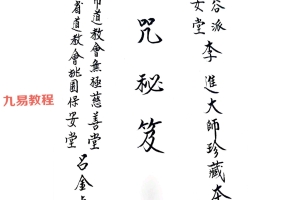 谷派
安堂
李進大師珍藏本
咒秘笈
市道教會無極慈善堂
省道教會桃園保安堂
呂金
九易教程